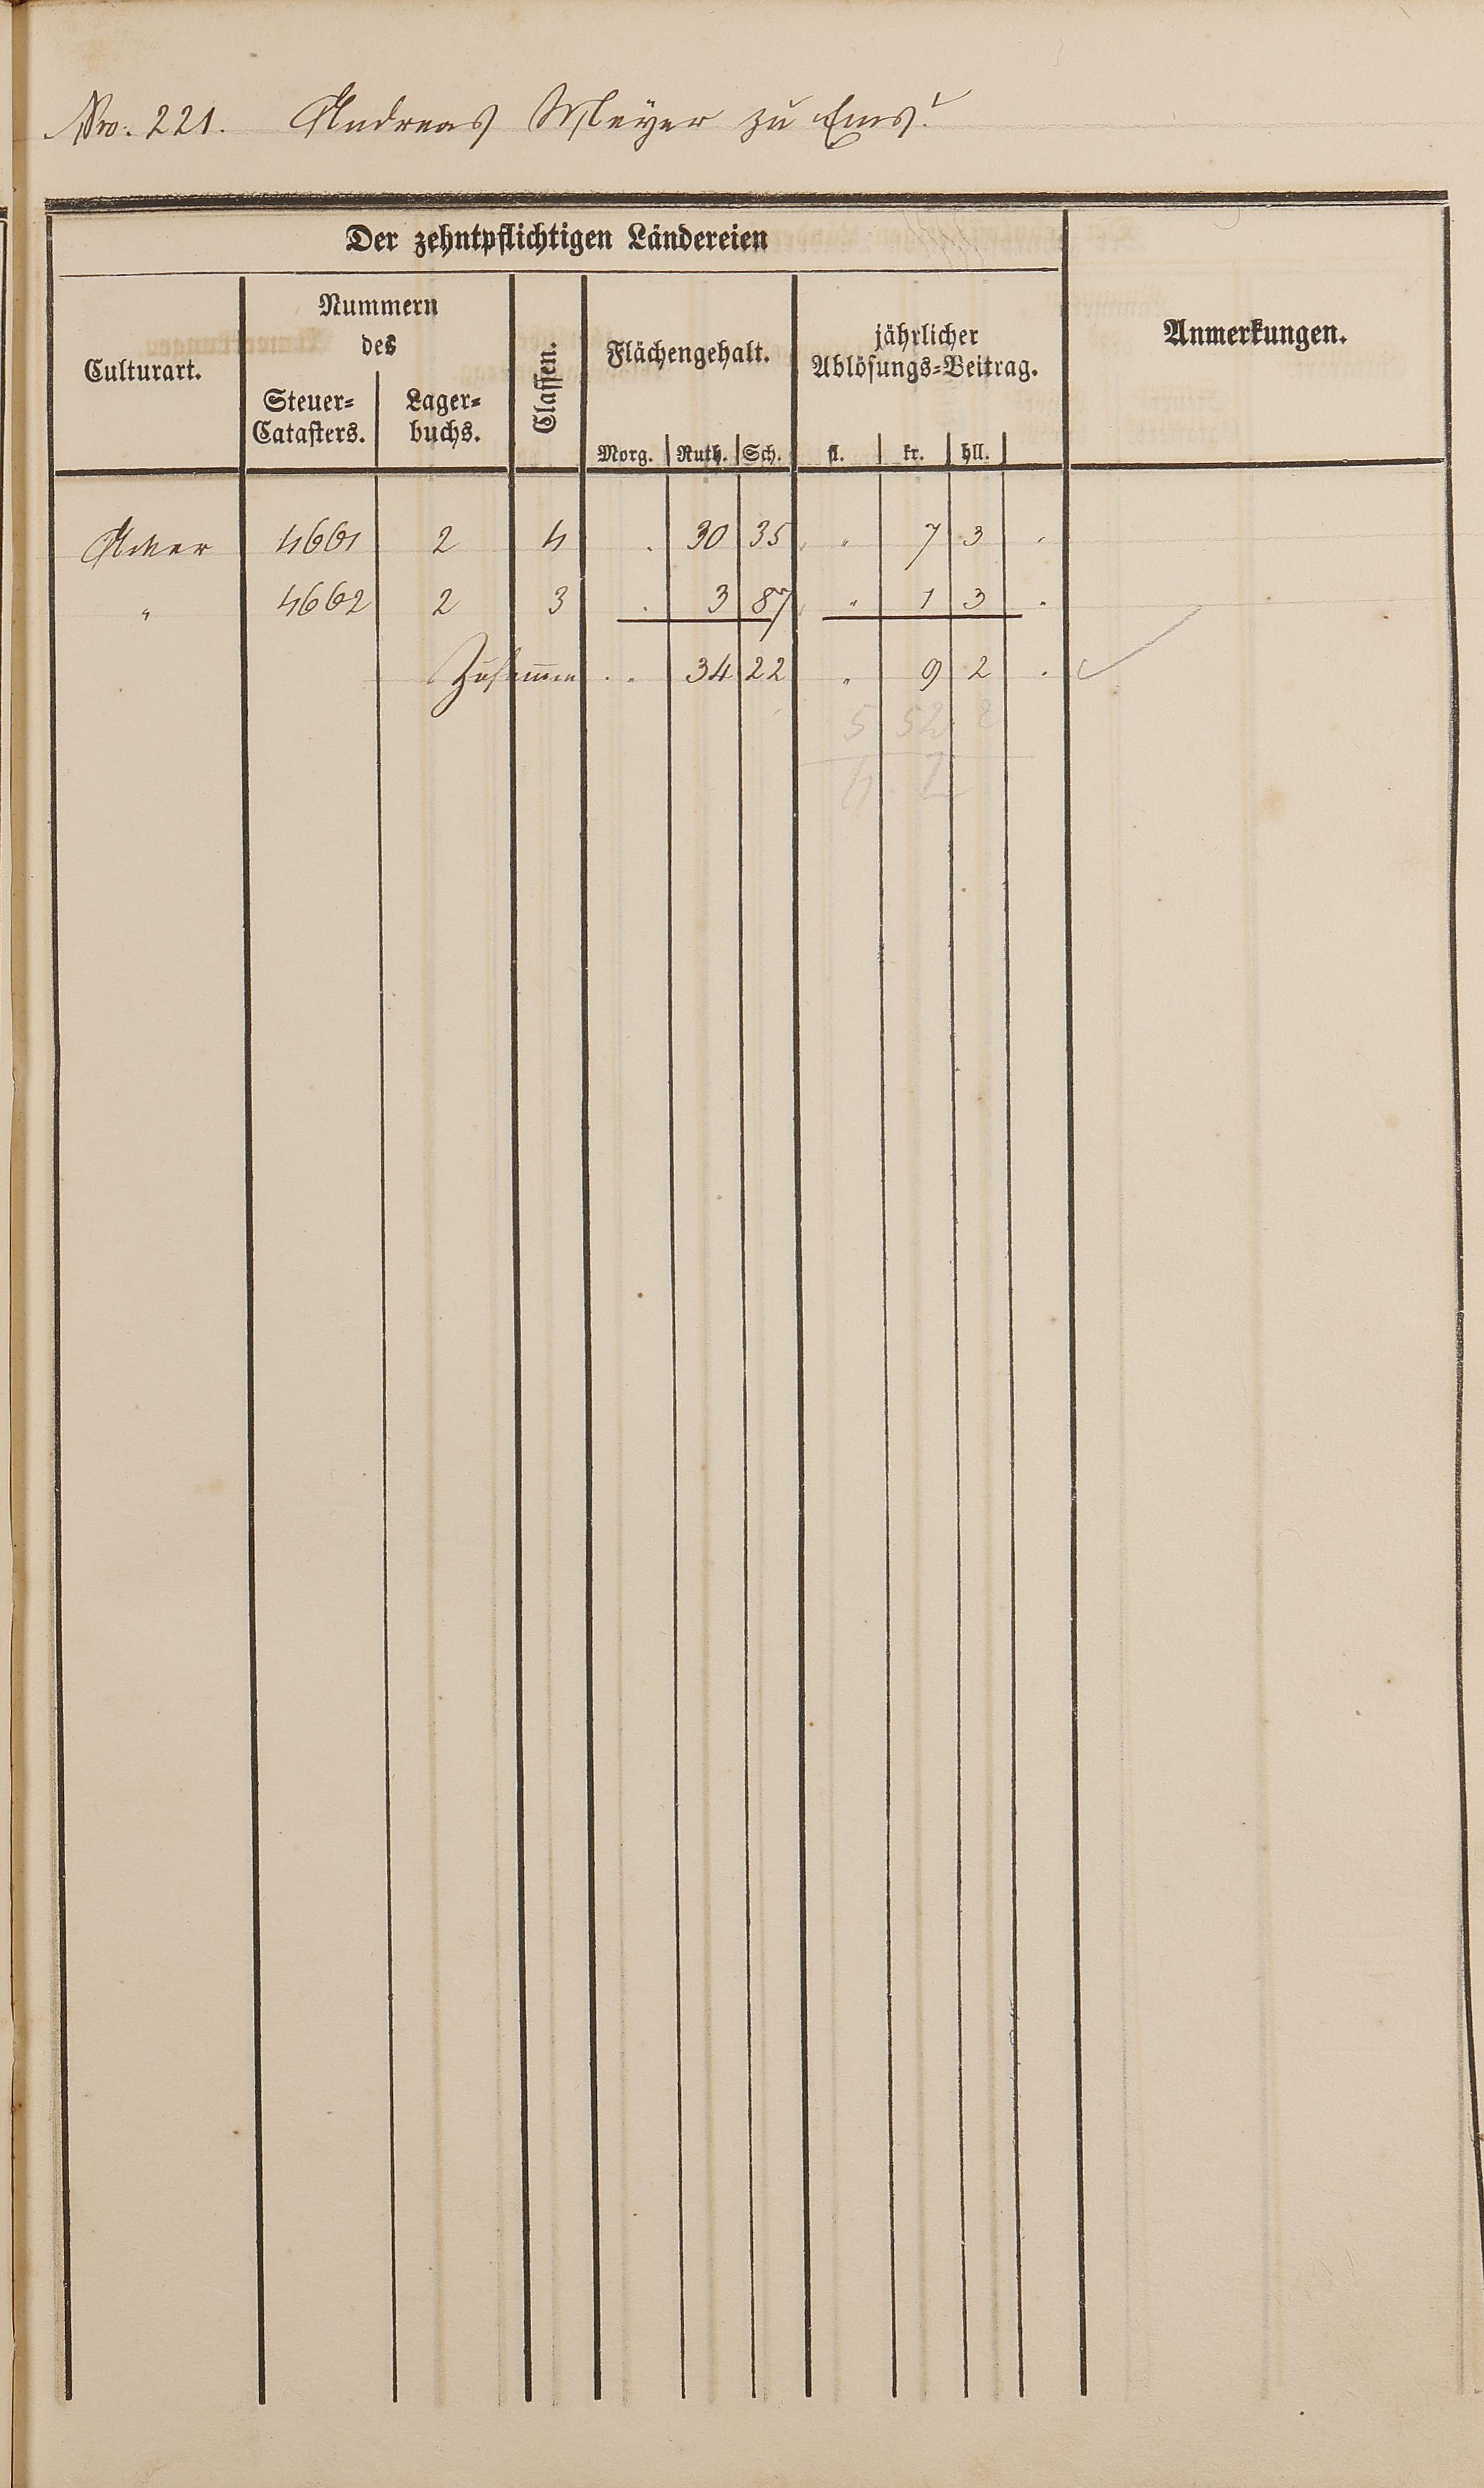 Nro. 221. Andreas Meÿer zu Ems.
Der zehntpflichtigen Ländereien
Culturart.
Nummern
des
Steuer=
Catasters.
Lager=
buchs.
Classen.
Flächengehalt.
Morg. Ruth. Sch.
jährlicher
Ablösungs=Beitrag.
fl. kr. hll.
Anmerkungen.
Acker 4661 2 4 . 30 35 " 7 3 .
" 4662 2 3 . 3 87 " 1 3 .
Zusammen . . 34 22 " 9 2 .
5 52 2